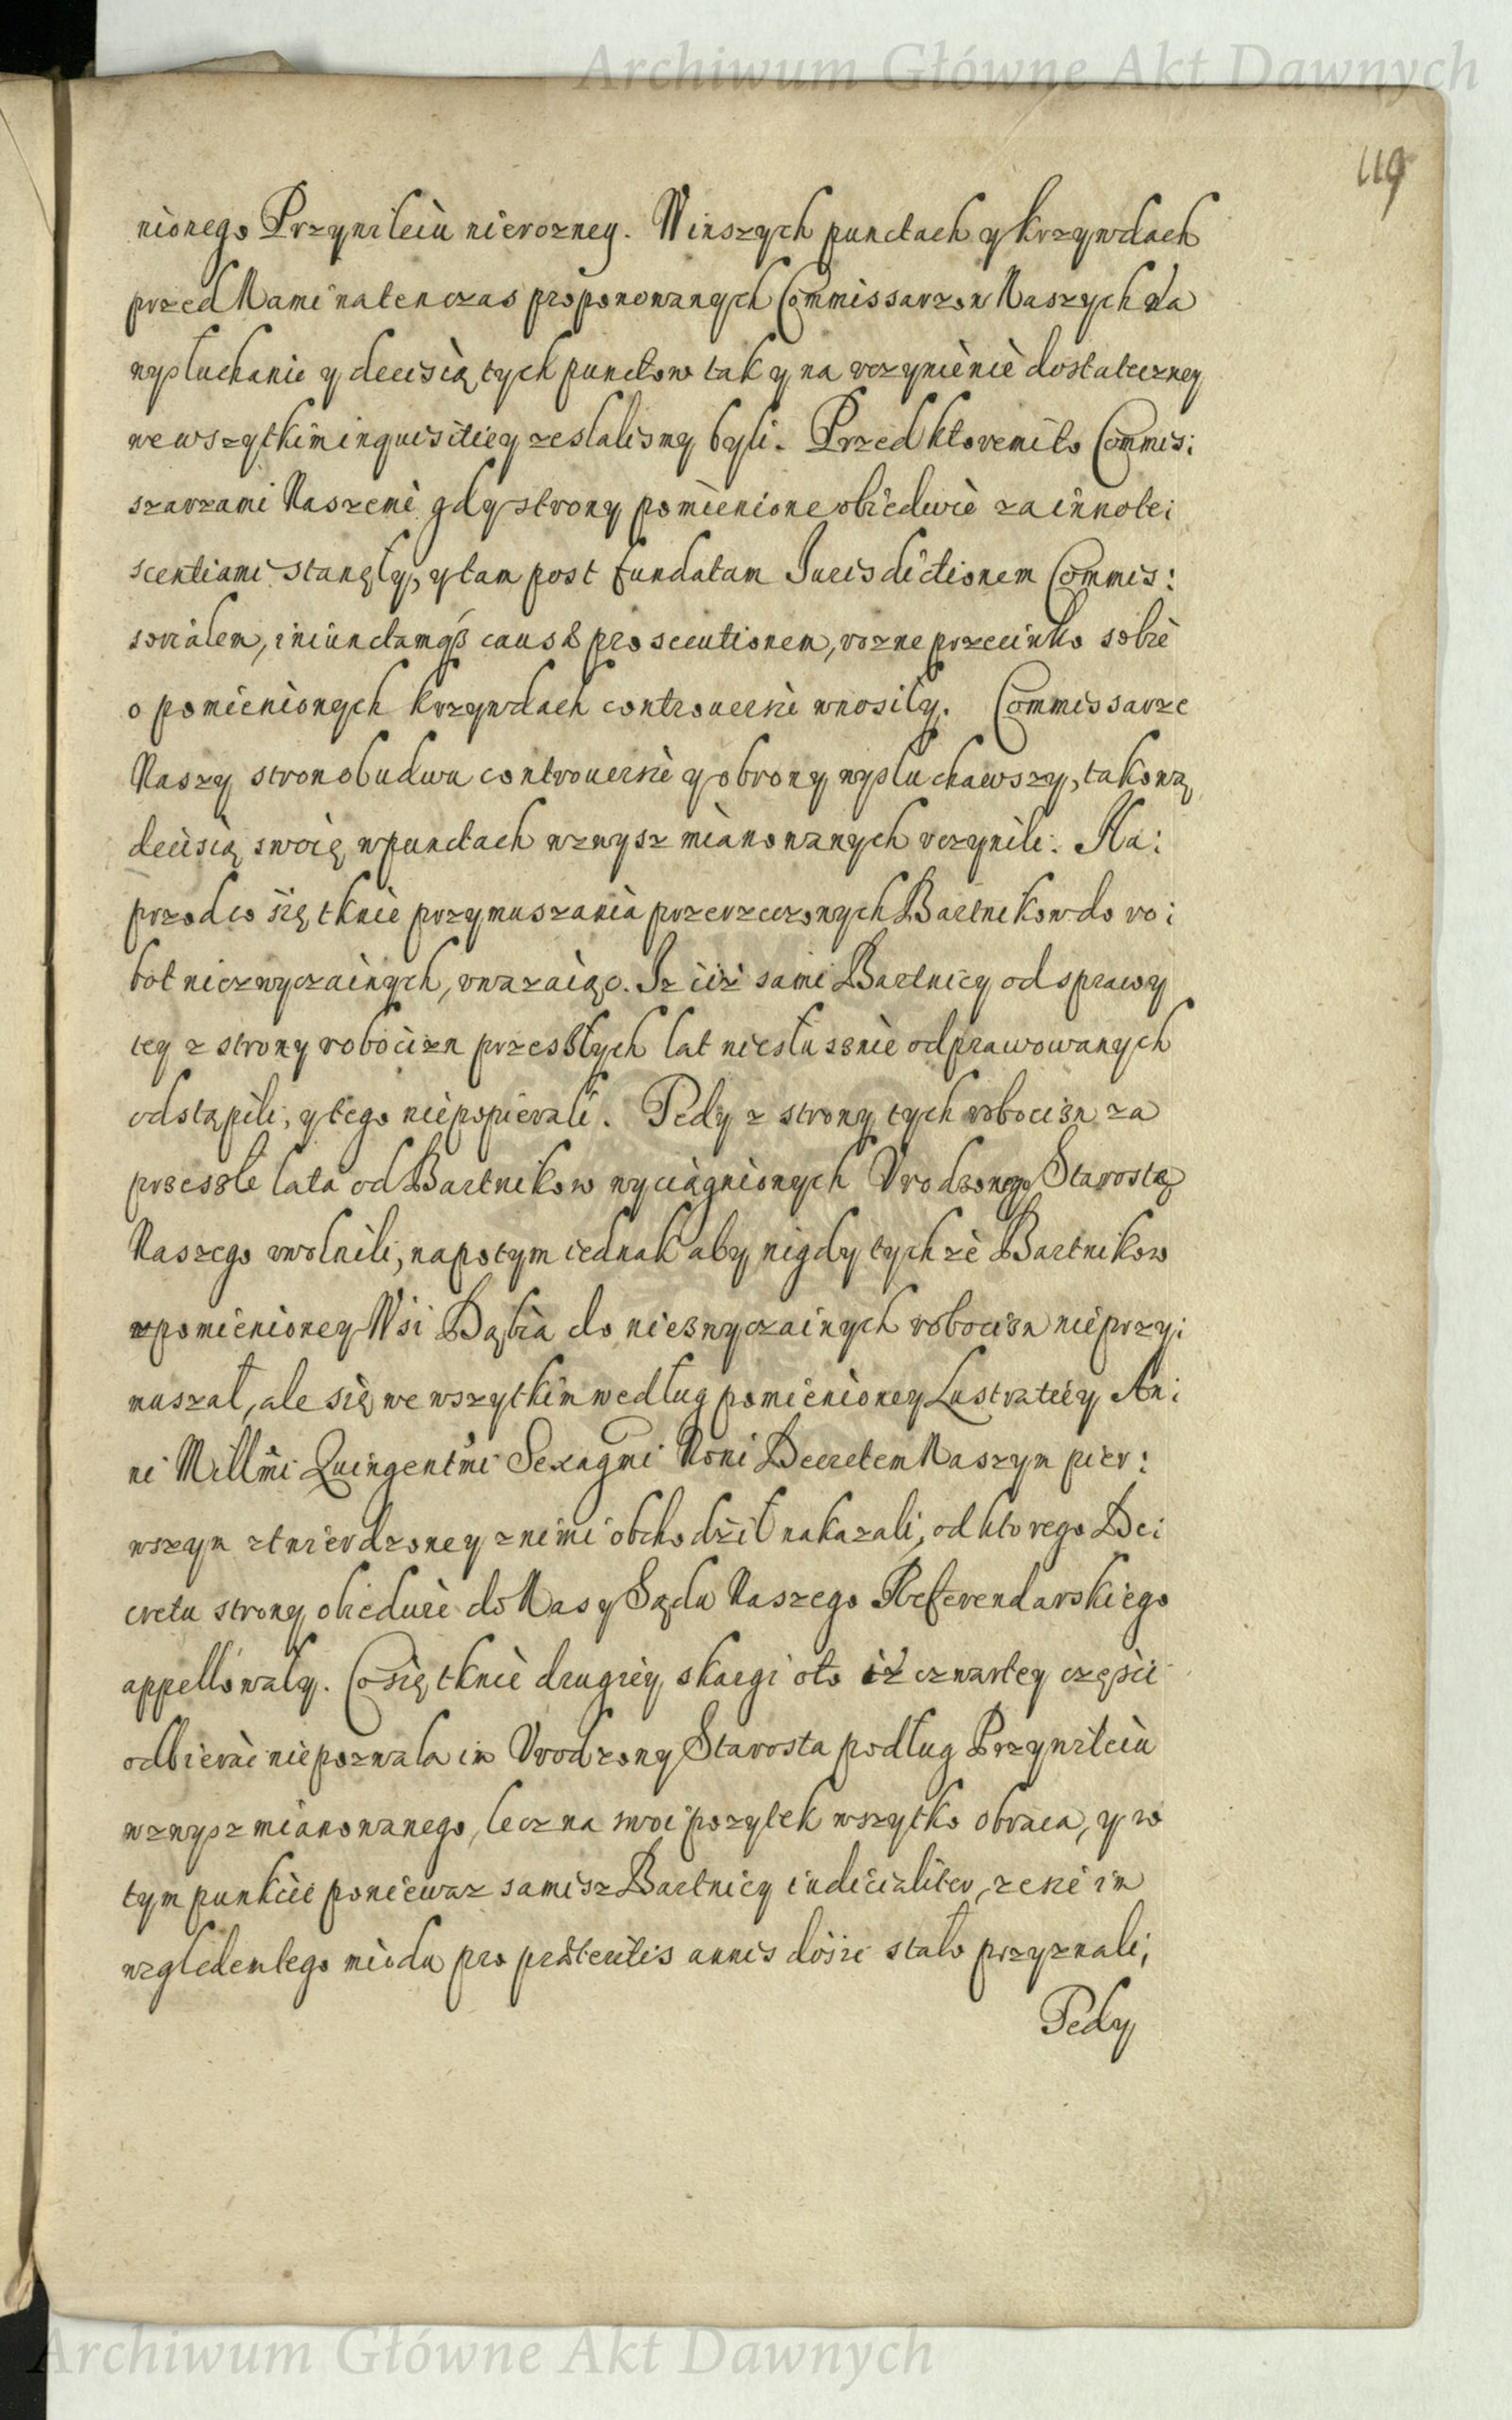 Archiwum Główne Akt Dawnych
119
nionego Przywileiu nierozney. Winszych punctach y krzywdach
przed Nami natenczas proponowanych Commissarzow Naszych na
wysłuchanie y decisią tych punctow tak y na vczynienie dostateczney
we wszytkim inquisitiey zeslalismy byli. Przed ktoremito Commis:
szarzami Naszemi gdy strony pomienione obiedwie za innote:
scentiami stanęły, y tam post fundatam Jurisdictionem Commis:
sorialem, iniunctamq3 causæ prosecutionem, rozne przeciwko sobie
o pomienionych krzywdach controuersie wnosiły. Commissarze
Naszy stron obudwu controuersie y obrony wysluchawszy, takową
decisią swoię w punctach wzwysz mianowanych vczynili. Na:
przod co się tknie przymuszania przerzeczonych Bartnikow do ro:
bot niezwyczainych, vwazaiąc. Iz iiż sami Bartnicy od sprawy
tey z strony robocizn przeszłych lat niesłusznie odprawowanych
odstąpili, y tego niepopierali. Tedy z strony tych robocizn za
przeszłe lata od Bartnikow wyciągnionych Vrodzonego Starostą
Naszego vwolnili, napotym iednak aby nigdy tychże Bartnikow
w pomienioney Wsi Dąbia do niezwyczainych robocizn nieprzy:
muszał, ale się we wszytkim według pomienioney Lustratiey An:
ni Millmi Quingentmi Sexagmi Noni Decretem Naszym pier:
wszym ztwierdzoney z nimi obchodził nakazali, od ktorego De:
cretu strony obiedwie do Nas y Sądu Naszego Referendarskiego
appellowały. Co się tknie drugiey skargi oto iż czwartey części
odbierać niepozwala im Vrodzony Starosta podług Przywileiu
wzwysz mianowanego, lecz na swoi pozytek wszytko obraca, y w
tym punkcie poniewaz samisz Bartnicy iudicialiter, zesie im
względem tego miodu pro præteritis annis dosic stało przyznali,
Tedy
Archiwum Główne Akt Dawnych